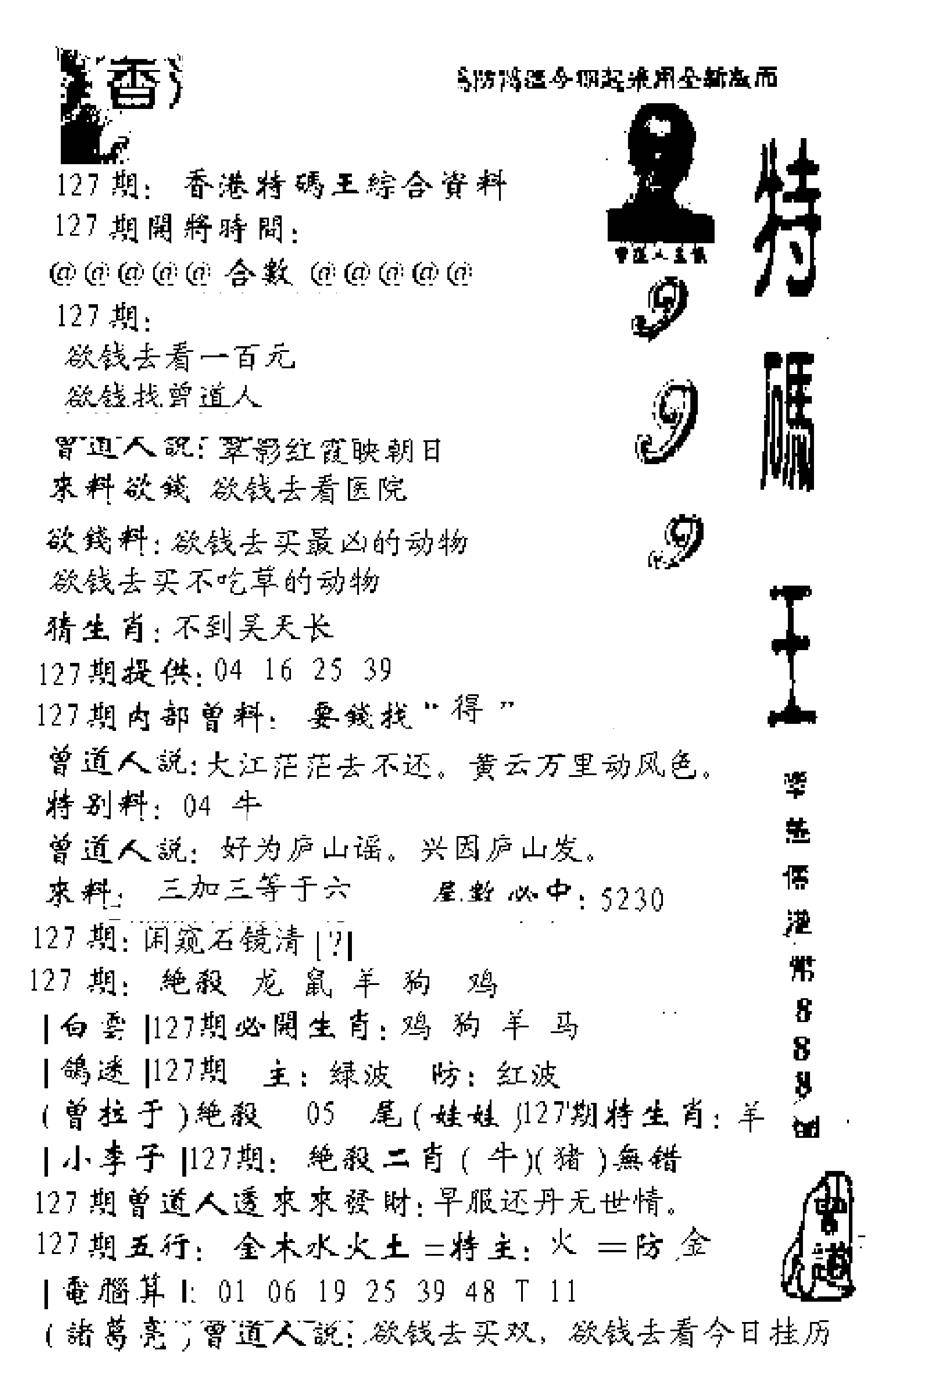 香
127期：香港特碼王綜合資料
127期開將時間：
@@@@@合數@@@@@
127期：
欲钱去看一百元
欲钱找曾道人
曾道人說：翠影红霞映朝日
來料欲錢 欲钱去看医院
欲錢料：欲钱去买最凶的动物
欲钱去买不吃草的动物
猜生肖：不到吴天长
127期提供：04 16 25 39
127期内部曾料：要錢找“得”
曾道人說：大江茫茫去不还。黄云万里动风色。
特别料：04 牛
曾道人說：好为庐山谣。兴因庐山发。
來料：三加三等于六 尾數必中：5230
127期：闲窥石镜清|?|
127期：絶殺 龙 鼠 羊 狗 鸡
|白雲|127期必開生肖：鸡 狗 羊 马
|鴿迷|127期 主：绿波 防：红波
(曾拉于)絶殺 05 尾(娃娃)127期特生肖：羊
|小李子|127期：絶殺二肖(牛)(猪)無錯
127期曾道人透來來發財：早服还丹无世情。
127期五行：金木水火土=特主：火=防金
|電腦算|：01 06 19 25 39 48 T 11
(諸葛亮)曾道人說：欲钱去买双，欲钱去看今日挂历
特碼王
999
港幣888
曾道